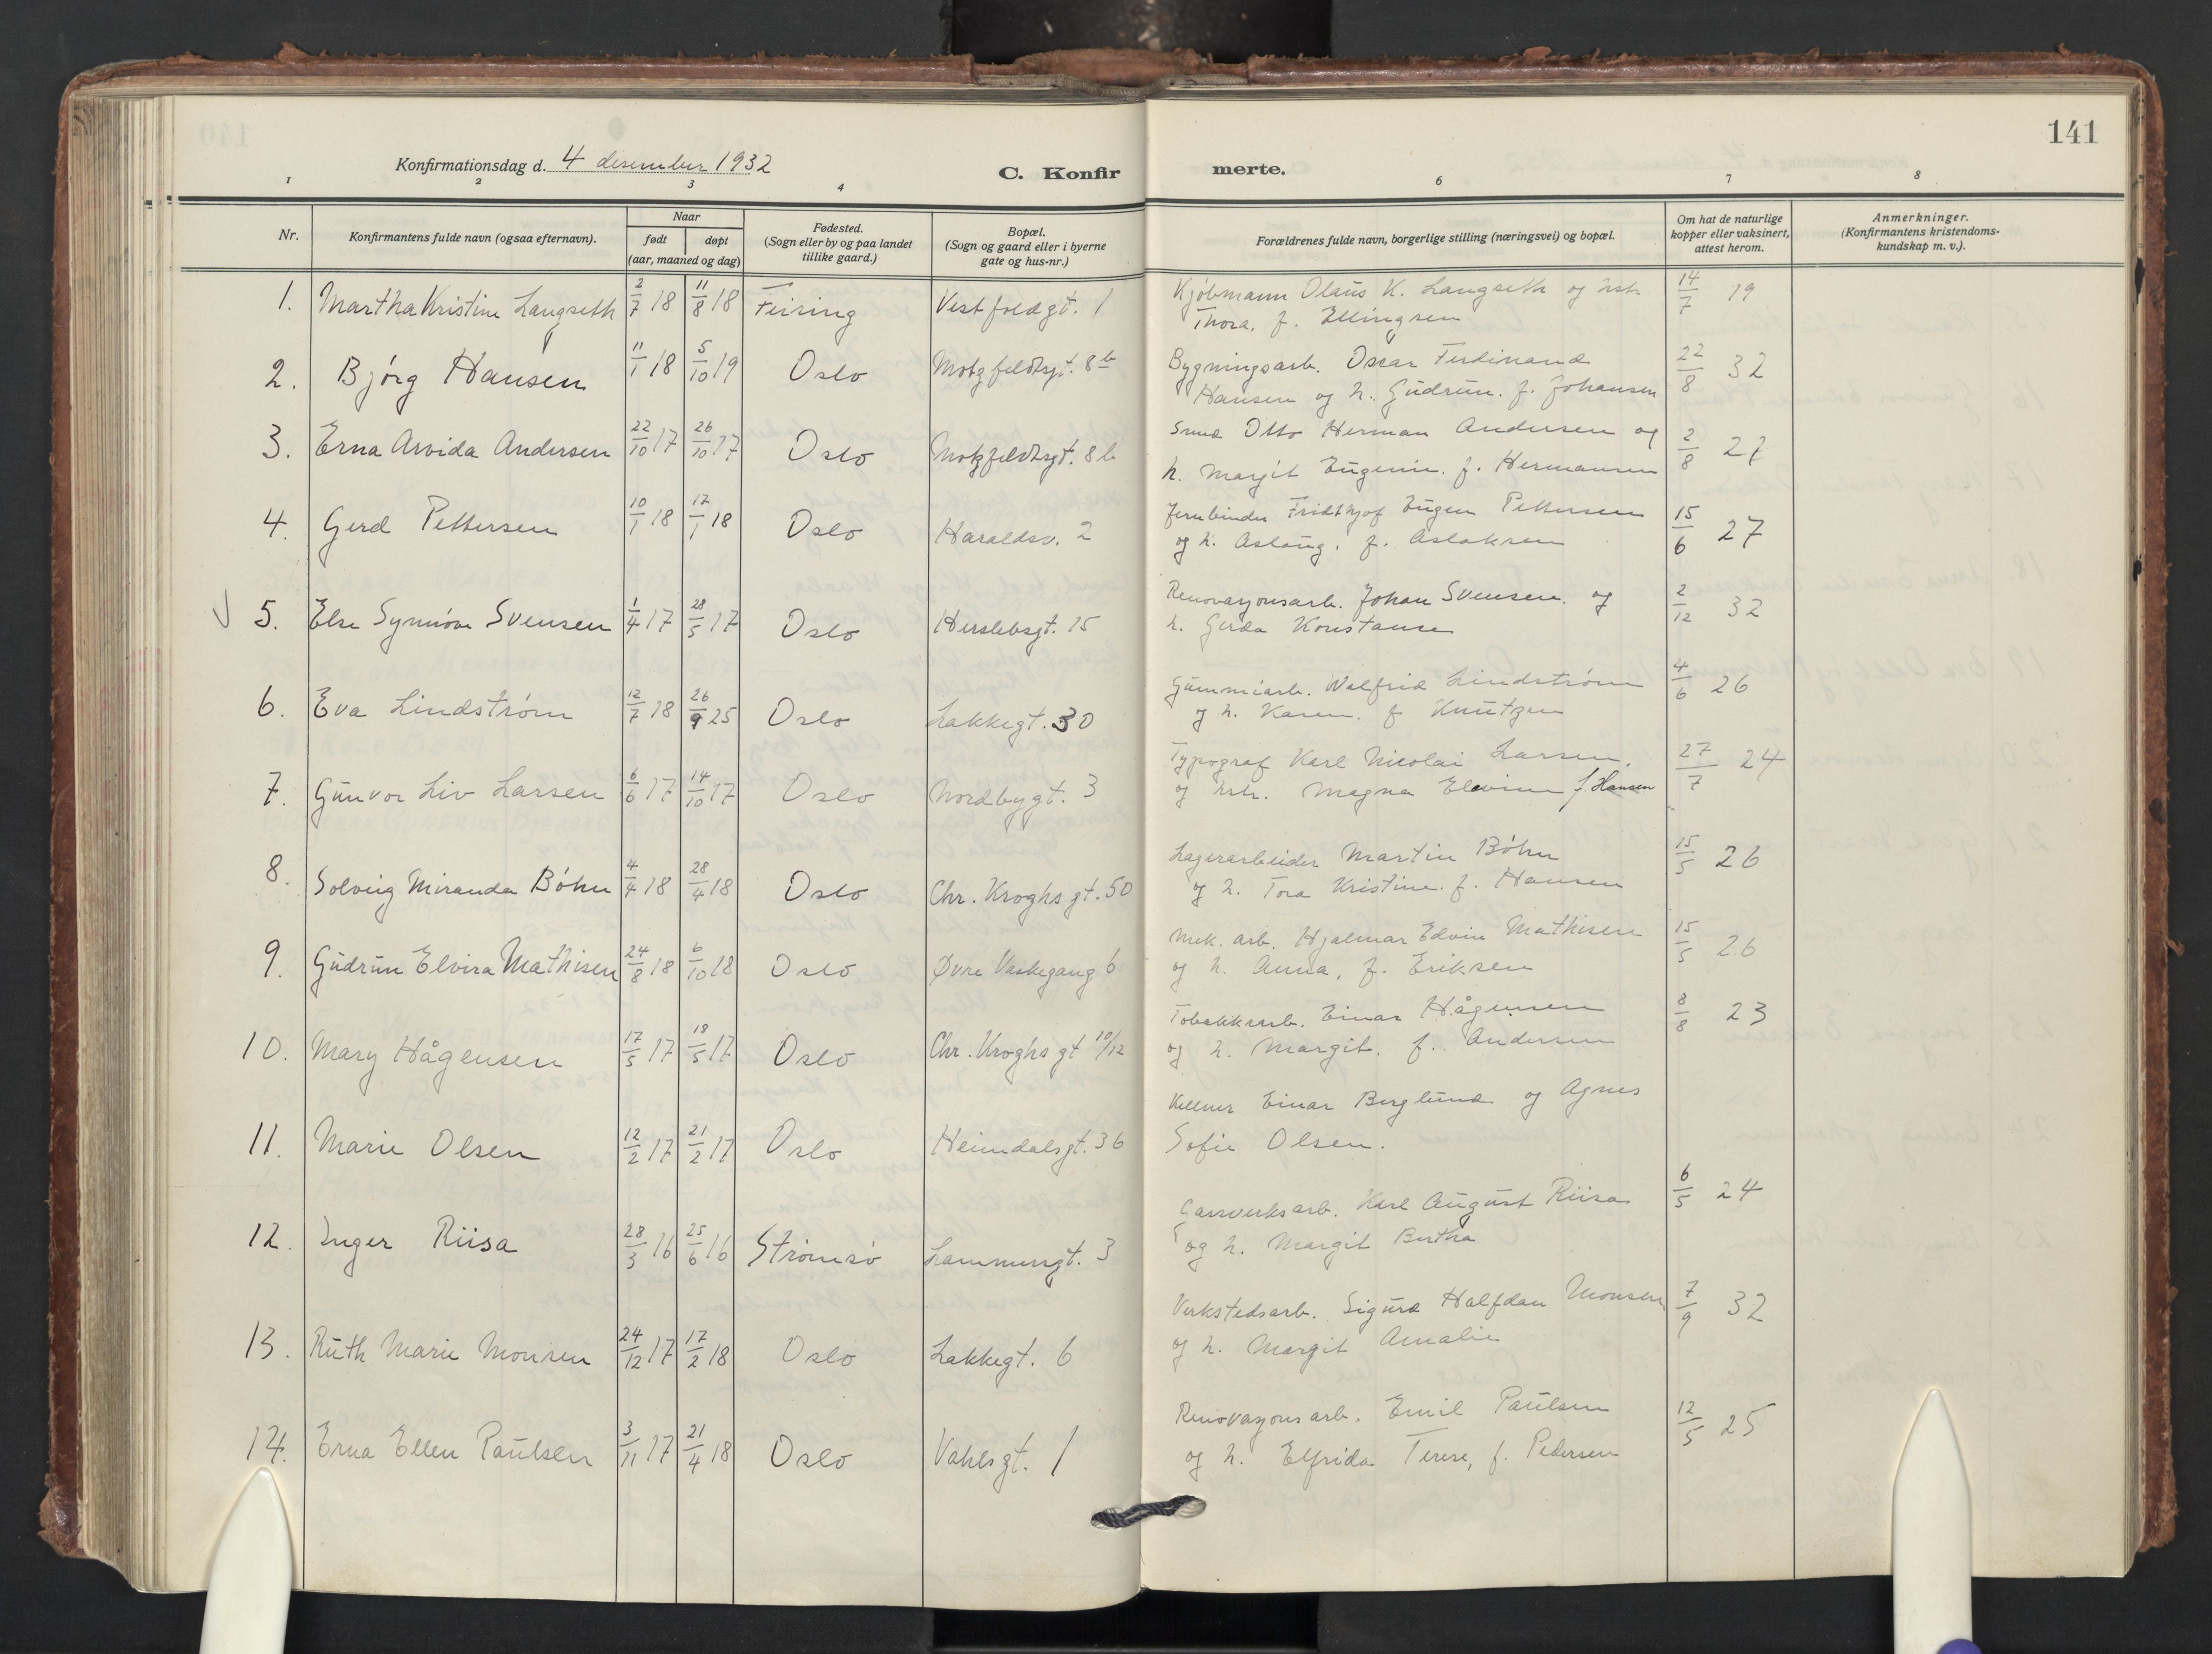 141
Konfirmationsdag d. 4 desember 1932
C. Konfir merte.
1 2 3 4 6 7 8
Nr. Konfirmantens fulde navn (ogsaa efternavn). Naar født døpt (aar, maaned og dag) Fødested. (Sogn eller by og paa landet tillike gaard.) Bopæl. (Sogn og gaard eller i byerne gate og hus-nr.) Forældrenes fulde navn, borgerlige stilling (næringsvei) og bopæl. Om hat de naturlige kopper eller vaksinert, attest herom. Anmerkninger. (Konfirmantens kristendomskundskap m. v.).
1. Martha Kristine Langseth 2/7 18 11/8 18 Feiring Vestfoldgt. 1 Kjøbmann Olaus K. Langseth og hstr. 14/7 19
Thora, f. Ellingsen
2. Bjørg Hansen 11/1 18 5/10 19 Oslo Motzfeldtsgt. 8b Bygningsarb. Oscar Ferdinand 22/8 32
Hansen og h. Gudrun. f. Johansen
3. Erna Arvida Andersen 22/10 17 26/10 17 Oslo Motzfeldtsgt. 8b Smed Otto Herman Andersen og 2/8 27
h. Margit Eugenie. f. Hermansen
4. Gerd Pettersen 10/1 18 17/1 18 Oslo Haraldsv. 2 Jernbinder Fridthjof Eugen Pettersen 15/6 27
og h. Aslaug. f. Aslaksen
5. Else Synnøve Svensen 1/4 17 28/5 17 Oslo Herslebsgt. 15 Renovasjonsarb. Johan Svensen. og 2/12 32
h. Gerda Konstanse
6. Eva Lindstrøm 12/7 18 26/9 25 Oslo Lakkegt. 30 Gummiarb. Walfrid Lindstrøm 4/6 26
og h. Karen. f Knutzen
7. Gunvor Liv Larsen 6/6 17 14/10 17 Oslo Nordbygt. 3 Typograf Karl Nicolai Larsen, 27/7 24
og hstr. Magna Elevine f. Hansen
8. Solveig Miranda Bøhn 4/4 18 28/4 18 Oslo Chr. Kroghs gt. 50 Lagerarbeider Martin Bøhn 15/5 26
og h. Tora Kristine. f. Hansen
9. Gudrun Elvira Mathisen 24/8 18 6/10 18 Oslo Øvre Vaskegang 6 Mek. arb. Hjalmar Edvin Mathisen 15/5 26
og h. Anna, f. Eriksen
10. Mary Hågensen 17/5 17 18/5 17 Oslo Chr. Kroghs gt 10/12 Tobakksarb. Einar Hågensen 8/8 23
og h. Margit. f. Andersen
11. Marie Olsen 12/2 17 21/2 17 Oslo Heimdalsgt. 36 Kellner Einar Berglund og Agnes
Sofie Olsen.
12. Inger Riisa 28/3 16 25/6 16 Strømsø Lammersgt. 3 Gassverksarb. Karl August Riisa 6/5 24
og h. Margit Bertha
13. Ruth Marie Monsen 24/12 17 17/2 18 Oslo Lakkegt. 6 Verkstedsarb. Sigurd Halfdan Monsen 7/9 32
og h. Margit Amalie
14. Erna Ellen Paulsen 3/11 17 21/4 18 Oslo Vahlsgt. 1 Renovasjonsarb. Emil Paulsen 12/5 25
og h. Elfrida Terese, f. Pedersen